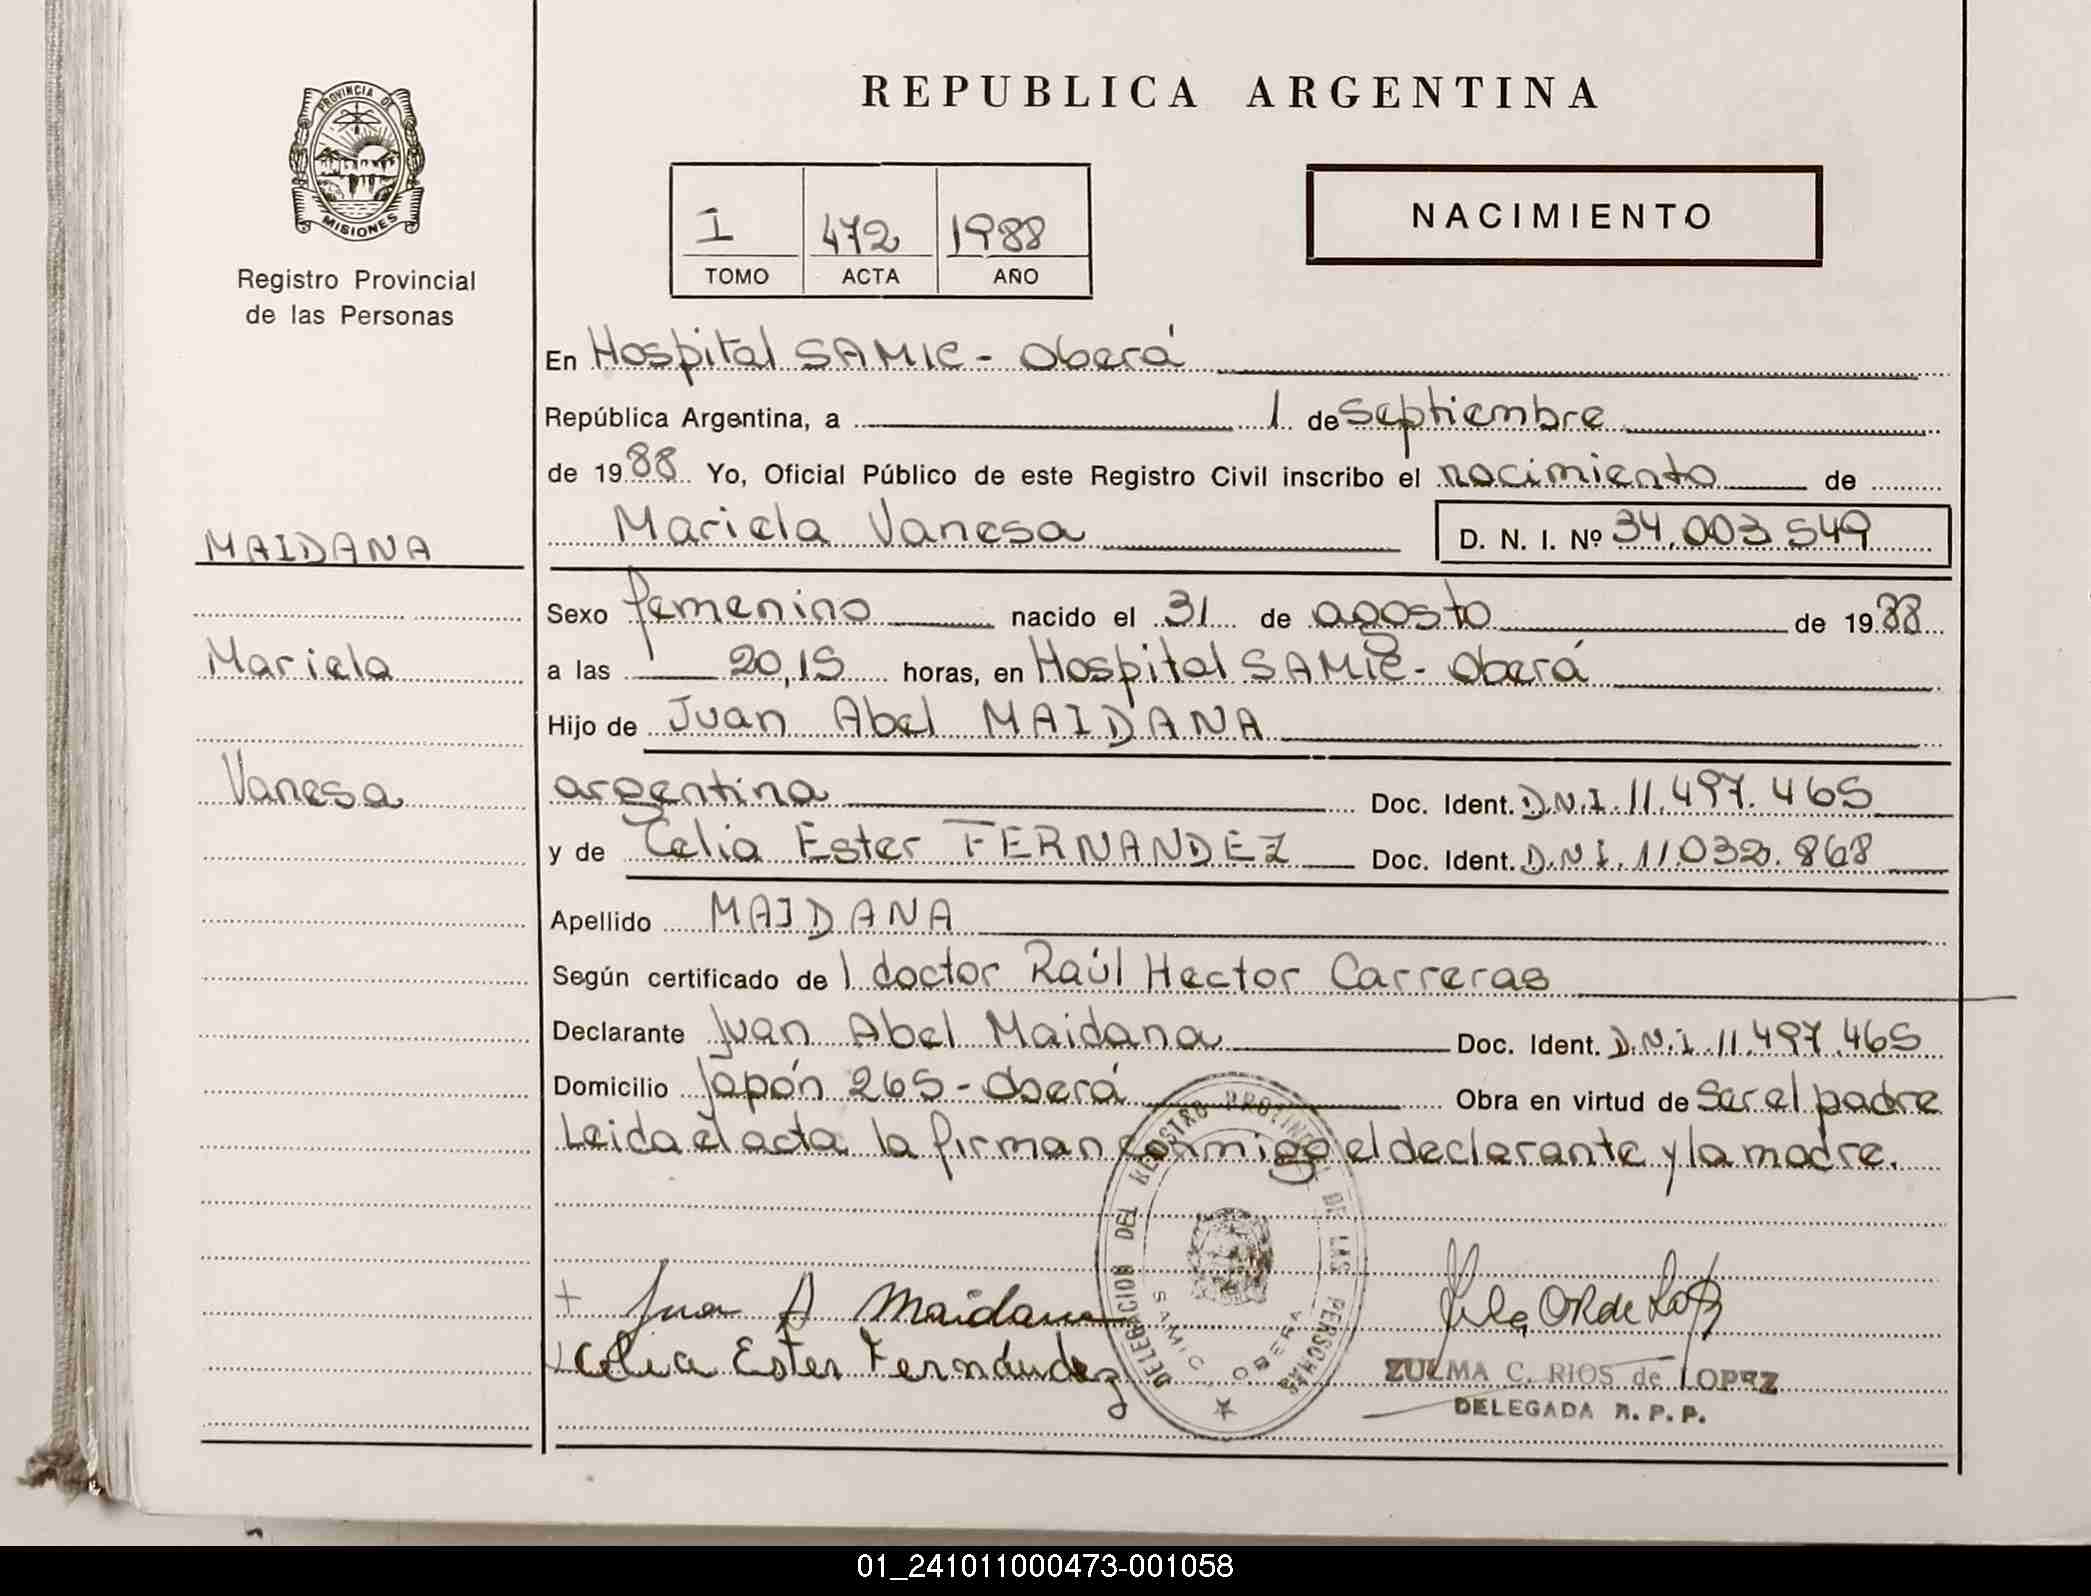 PROVINCIA DE
MISIONES
Registro Provincial
de las Personas
REPUBLICA ARGENTINA
I 472 1988
TOMO ACTA AÑO
NACIMIENTO
En Hospital SAMIC - Oberá
República Argentina, a 1 de Septiembre
de 1988 Yo, Oficial Público de este Registro Civil inscribo el nacimiento de
Mariela Vanesa D. N. I. Nº 34.003.549
MAIDANA
Mariela
Vanesa
Sexo femenino nacido el 31 de agosto de 1988
a las 20,15 horas, en Hospital SAMIC - Oberá
Hijo de Juan Abel MAIDANA
argentina Doc. Ident. D.N.I. 11.497.465
y de Celia Ester FERNANDEZ Doc. Ident. D.N.I. 11.032.868
Apellido MAIDANA
Según certificado de l doctor Raúl Hector Carreras
Declarante Juan Abel Maidana Doc. Ident. D.N.I. 11.497.465
Domicilio Japón 265 - Oberá Obra en virtud de ser el padre
Leida el acta la firman conmigo el declarante y la madre.
DELEGACION DEL REGISTRO PROVINCIAL DE LAS PERSONAS
SAMIC OBERA
Juan A Maidana
Celia Ester Fernández
ZULMA C. RIOS de LOPEZ
DELEGADA R. P. P.
01_241011000473-001058